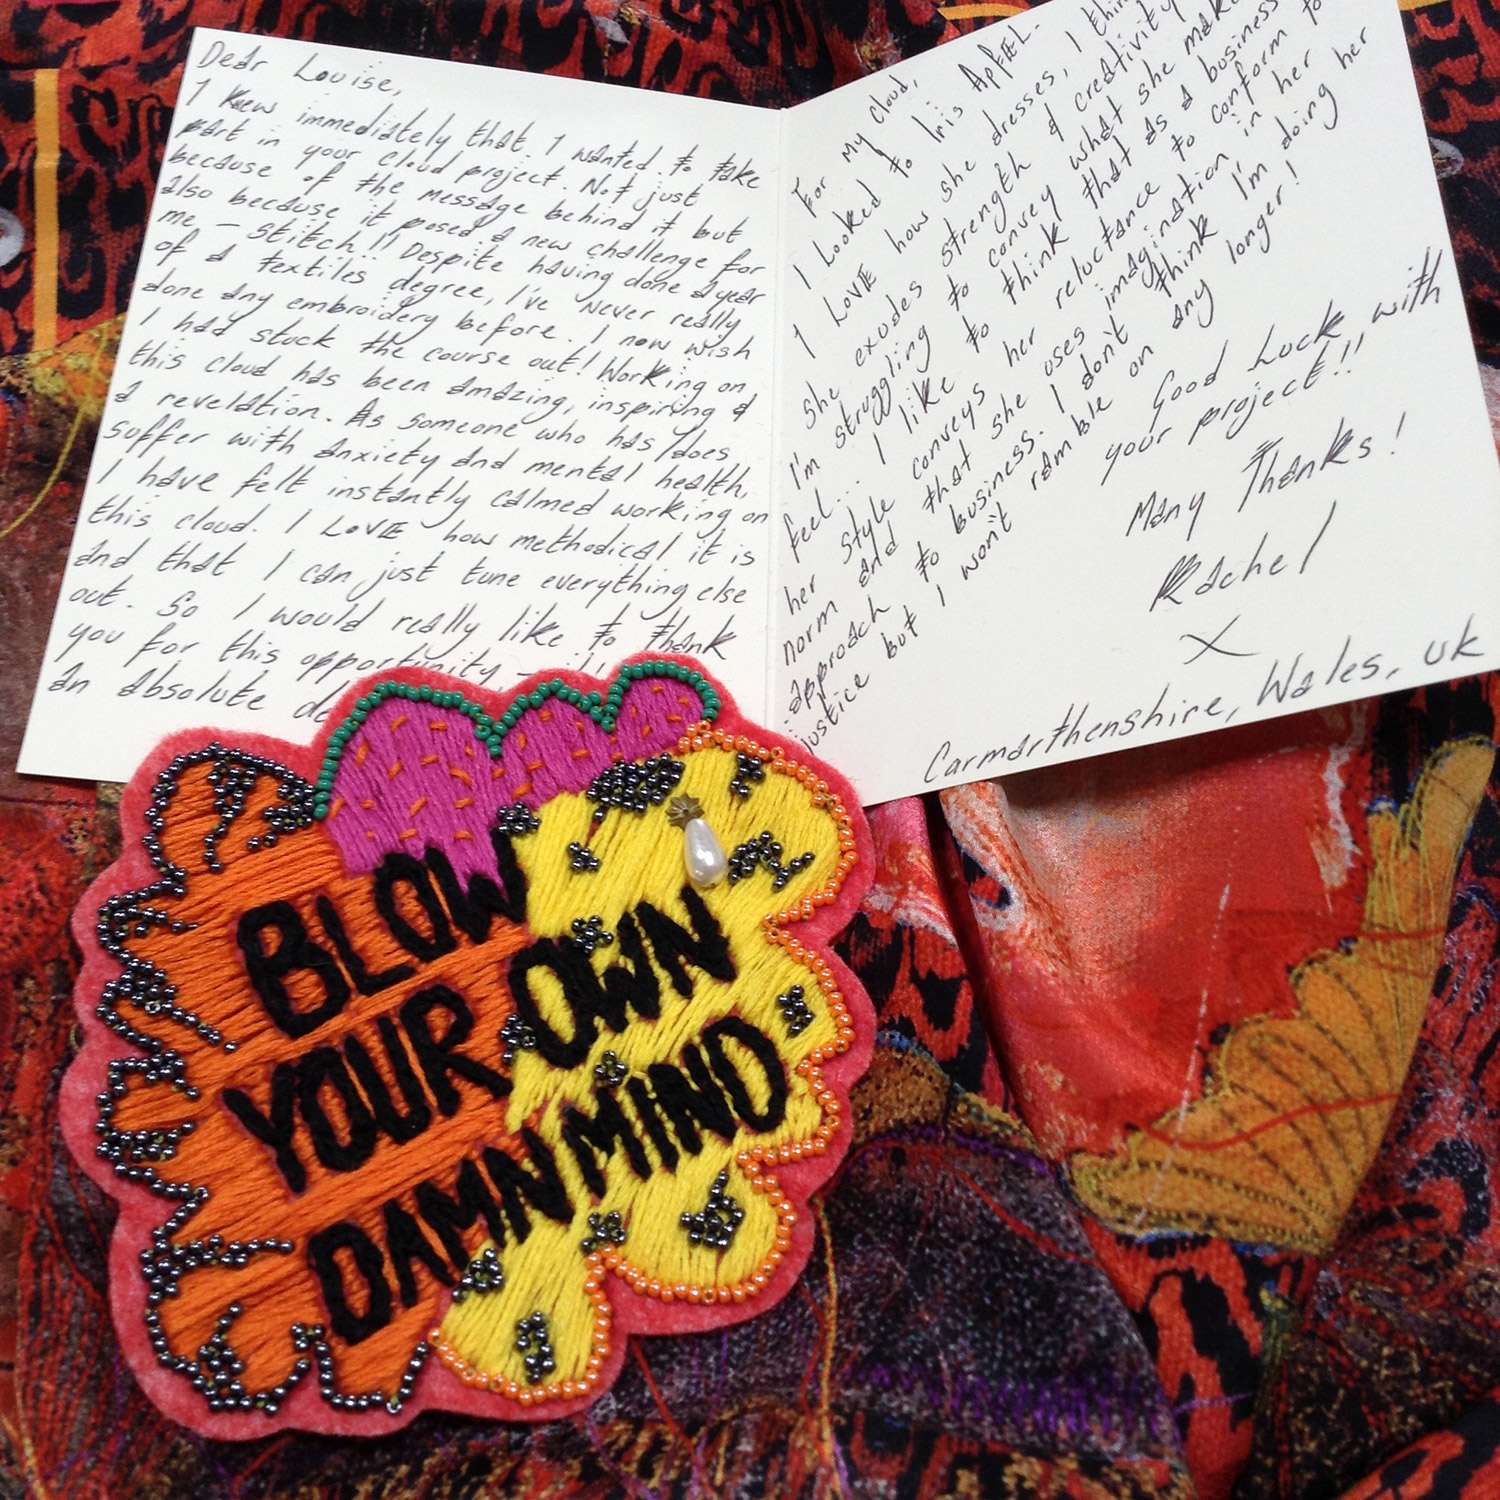 Dear Louise,
I knew immediately that I wanted to take
part in your cloud project. Not just
because of the message behind it but
also because it posed a new challenge for
me - stitch!! Despite having done a year
of a textiles degree, I've never really
done any embroidery before. I now wish
I had stuck the course out! Working on
this cloud has been amazing, inspiring &
a revelation. As someone who has/does
suffer with anxiety and mental health,
I have felt instantly calmed working on
this cloud. I LOVE how methodical it is
and that I can just tune everything else
out. So I would really like to thank
you for this opportunity,
an absolute
For my cloud,
I looked to Iris APFEL.
I LOVE how she dresses, I
she exudes strength & creativity
I'm struggling to convey what she
feel... I like to think that as a business
her style conveys her reluctance to conform to
norm and that she uses imagination in her
approach to business. I don't think I'm doing her
justice but I won't ramble on any longer!
Good Luck with
your project!!
Many Thanks!
Rachel
X
Carmarthenshire, Wales, UK
BLOW
YOUR OWN
DAMN MIND